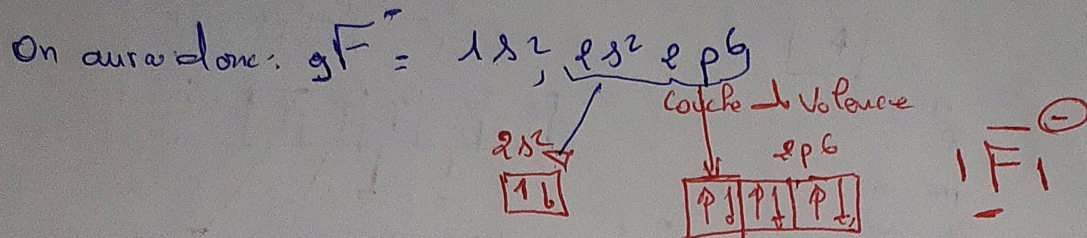 On aura donc: ₉F⁻ = 1s², 2s² 2p⁶
Couche de Valence
2s²
2p⁶
↑↓
↑↓ ↑↓ ↑↓
|F| ⊖